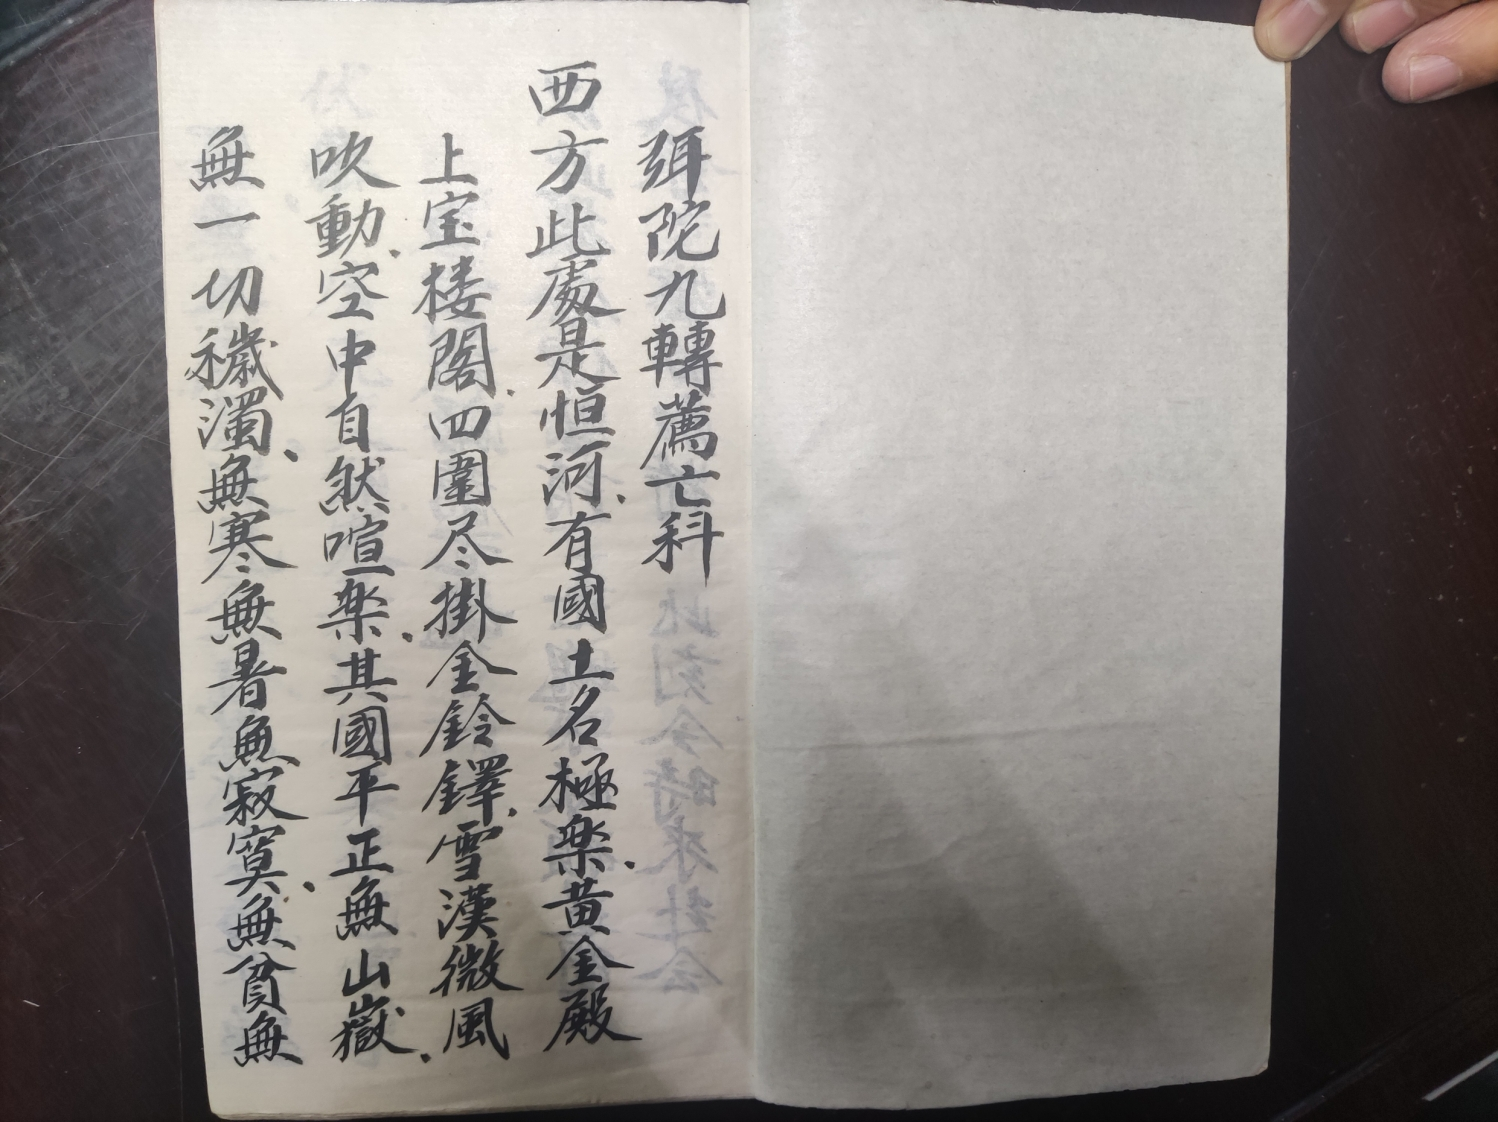 弭陀九轉薦亡科
西方此處是恒河.有國土名極楽.黄金殿
上宝楼閣.四圍尽掛金鈴鐸.雪漢微風
吹動.空中自然喧楽.其國平正無山嶽.
無一切穢濁.無寒無暑無寂寞.無貧無